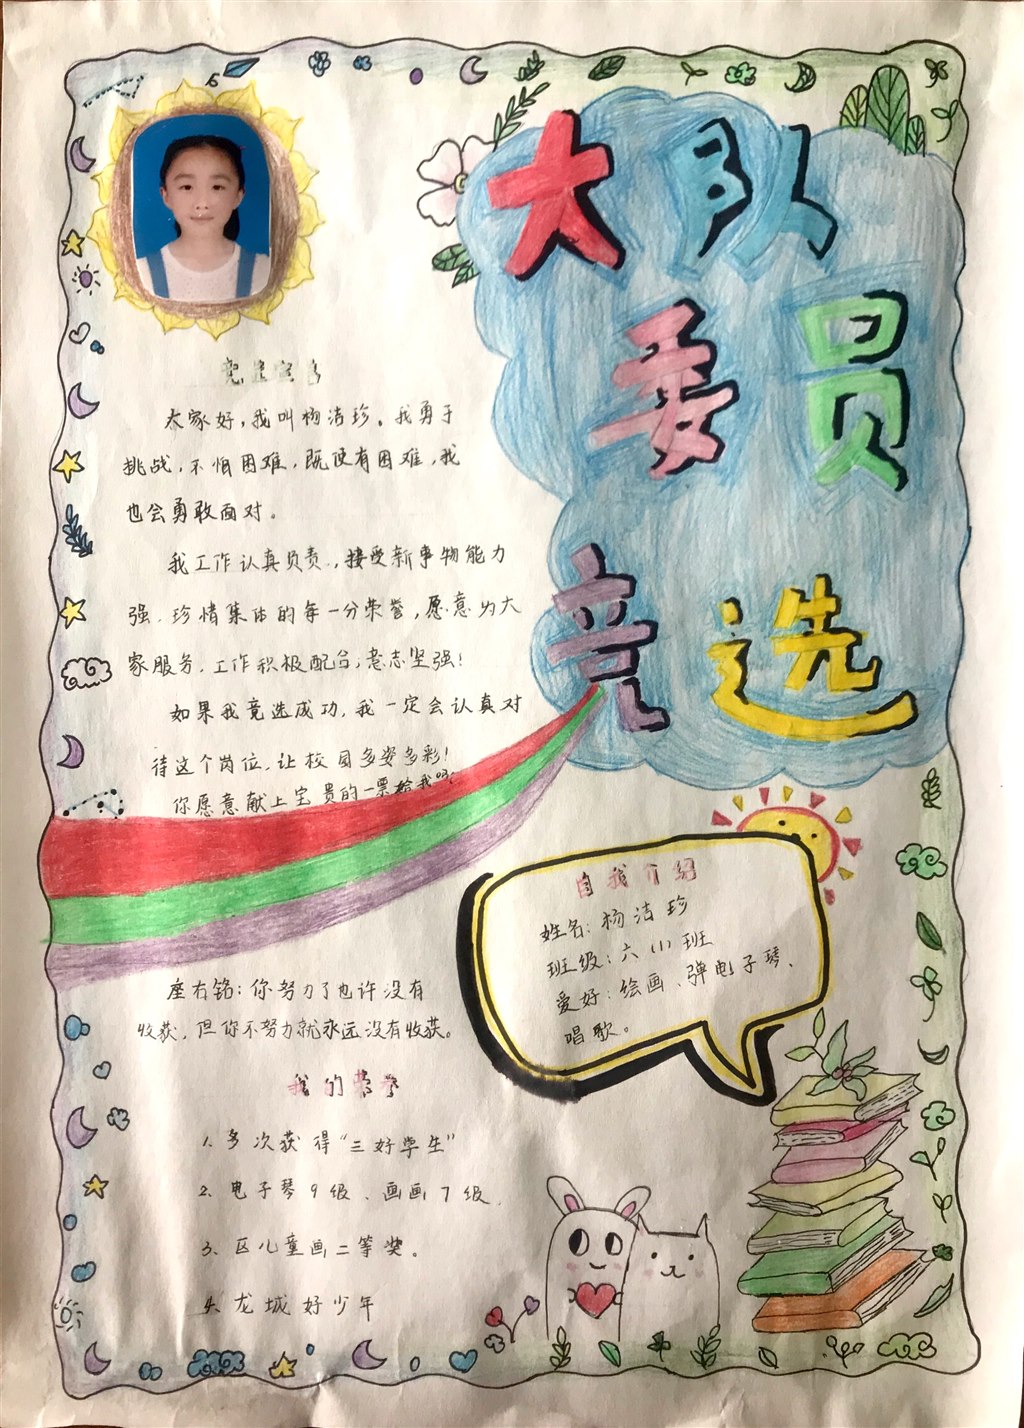 大队
委员
竞选
竞选宣言
大家好,我叫杨洁珍。我勇于
挑战,不怕困难,既使有困难,我
也会勇敢面对。
我工作认真负责,接受新事物能力
强.珍惜集体的每一分荣誉,愿意为大
家服务.工作积极配合,意志坚强!
如果我竞选成功,我一定会认真对
待这个岗位,让校园多姿多彩!
你愿意献上宝贵的一票给我吗?
自我介绍
姓名:杨洁珍
班级:六(1)班
爱好:绘画、弹电子琴、
唱歌。
座右铭:你努力了也许没有
收获,但你不努力就永远没有收获。
我的荣誉
1.多次获得“三好学生”
2、电子琴9级、画画7级.
3、区儿童画二等奖。
4、龙城好少年